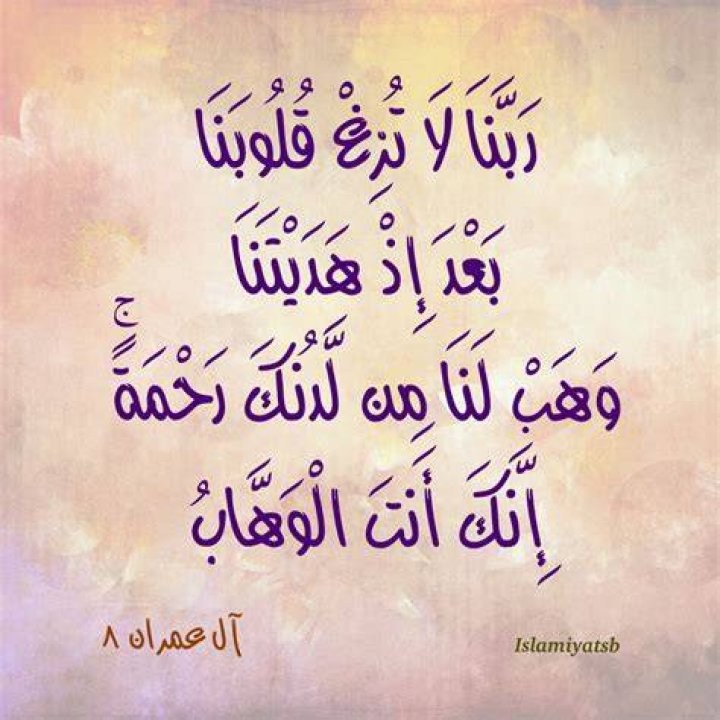 رَبَّنَا لَا تُزِغْ قُلُوبَنَا
بَعْدَ إِذْ هَدَيْتَنَا
وَهَبْ لَنَا مِن لَّدُنكَ رَحْمَةً ۚ
إِنَّكَ أَنتَ الْوَهَّابُ
آل عمران ٨
Islamiyatsb